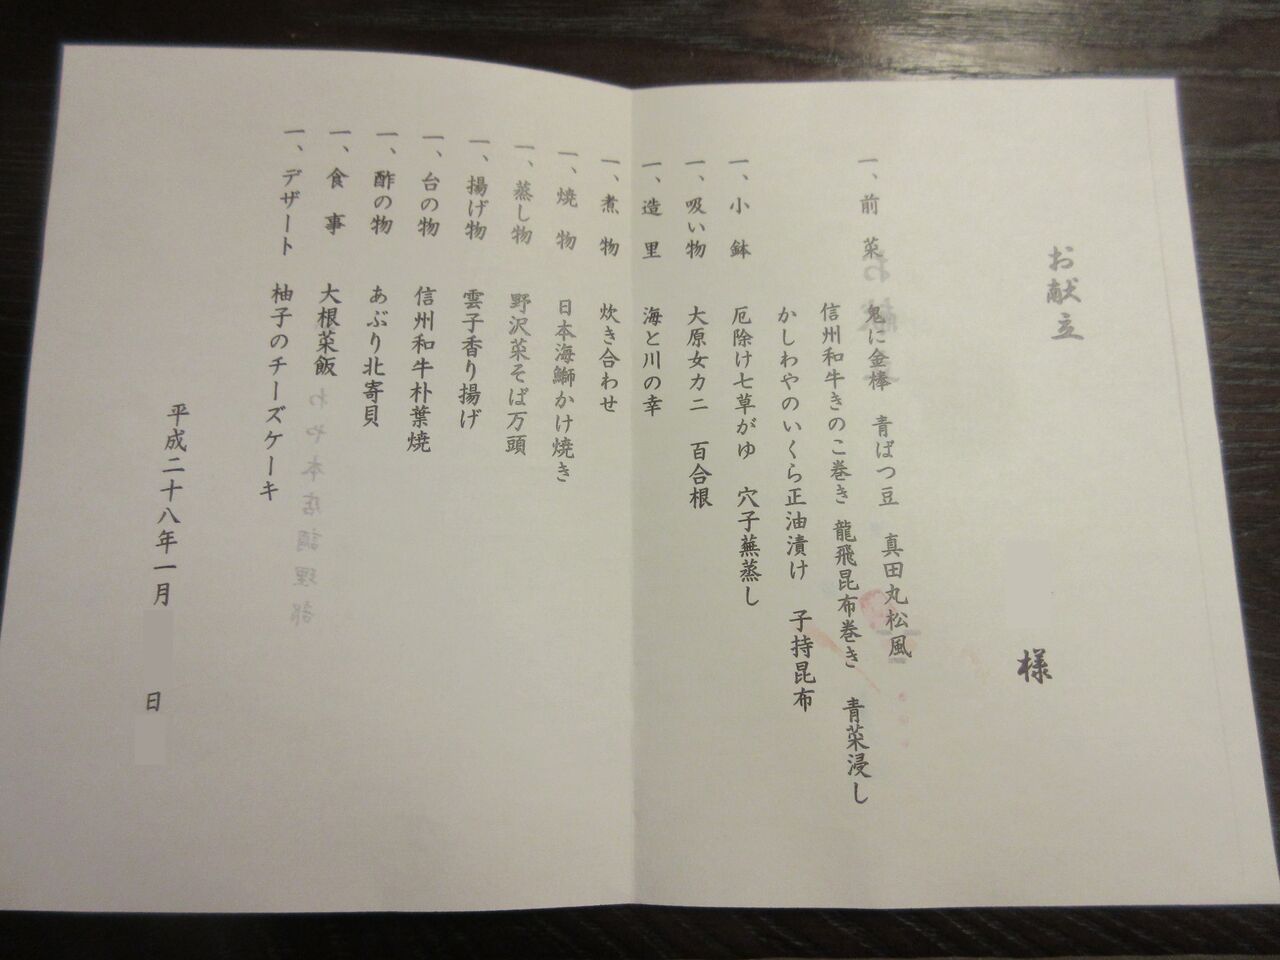 お献立
様
一、前菜 鬼に金棒 青ばつ豆 真田丸松風
信州和牛きのこ巻き 龍飛昆布巻き 青菜浸し
かしわやのいくら正油漬け 子持昆布
一、小鉢 厄除け七草がゆ 穴子蕪蒸し
一、吸い物 大原女カニ 百合根
一、造里 海と川の幸
一、煮物 炊き合わせ
一、焼物 日本海鰤かけ焼き
一、蒸し物 野沢菜そば万頭
一、揚げ物 雲子香り揚げ
一、台の物 信州和牛朴葉焼
一、酢の物 あぶり北寄貝
一、食事 大根菜飯
一、デザート 柚子のチーズケーキ
平成二十八年一月 日
わや本店調理部